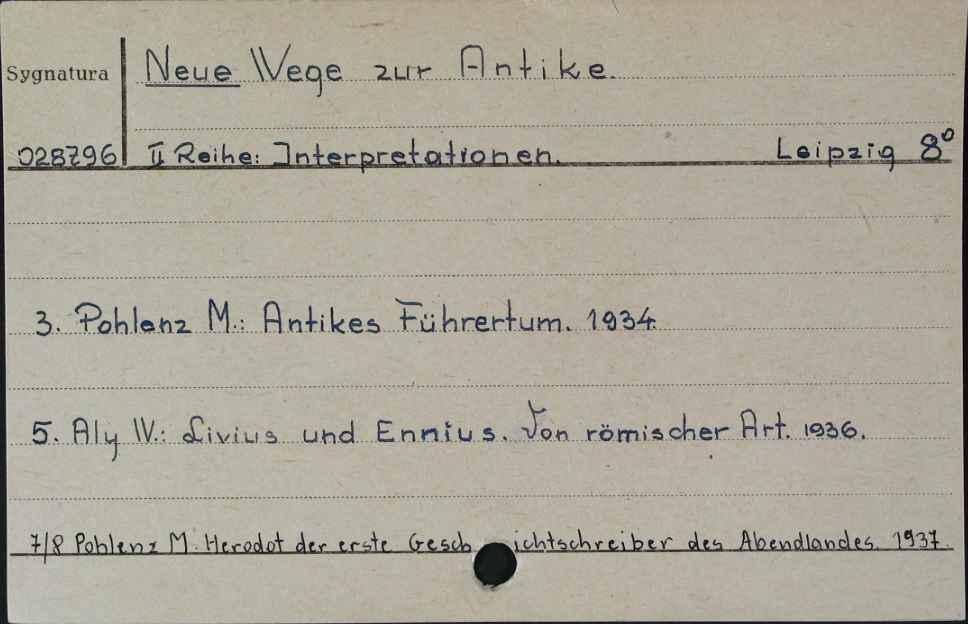 Neue Wege zur Antike.
Sygnatura
028796 II Reihe: Interpretationen. Leipzig 8°
3. Pohlenz M.: Antikes Führertum. 1934.
5. Aly W.: Livius und Ennius. Von römischer Art. 1936.
7/8 Pohlenz M. Herodot der erste Geschichtschreiber des Abendlandes. 1937.